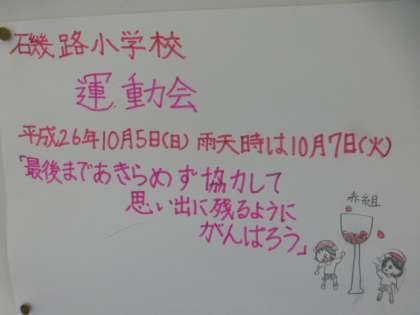 磯路小学校
運動会
平成26年10月5日(日) 雨天時は10月7日(火)
「最後まであきらめず協力して
思い出に残るように
がんばろう」
赤組